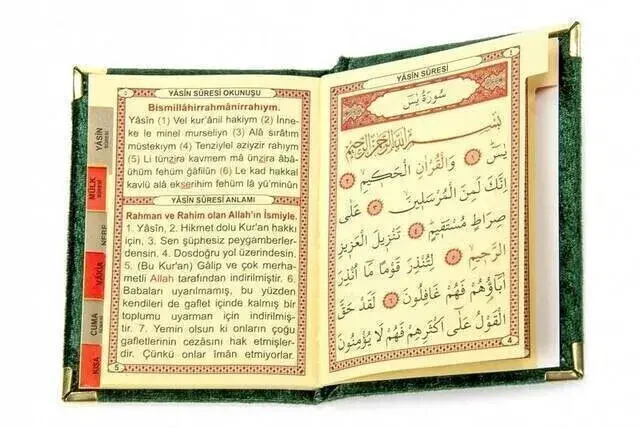 YÂSÎN SÛRESİ OKUNUŞU
Bismillâhirrahmânirrahıym.
Yâsîn (1) Vel kur'ânil hakiym (2) İnne-
ke le minel murseliyn (3) Alâ sırâtım
müstekıym (4) Tenziylel aziyzir rahıym
(5) Li tünzira kavmem mâ ünzira âbâ-
ühüm fehüm gâfilûn (6) Le kad hakkal
kavlü alâ ekserihim fehüm lâ yü'minûn
YÂSÎN SÛRESİ ANLAMI
Rahman ve Rahim olan Allah'ın İsmiyle.
1. Yâsîn, 2. Hikmet dolu Kur'an hakkı
için, 3. Sen şüphesiz peygamberler-
densin. 4. Dosdoğru yol üzerindesin.
5. (Bu Kur'an) Gâlip ve çok merha-
metli Allah tarafından indirilmiştir. 6.
Babaları uyarılmamış, bu yüzden
kendileri de gaflet içinde kalmış bir
toplumu uyarman için indirilmiş-
tir. 7. Yemin olsun ki onların çoğu
gafletlerinin cezasını hak etmişler-
dir. Çünkü onlar îmân etmiyorlar.
5
YÂSÎN
MÜLK
NEBE
VÂKIA
CUMA
KISA
YÂSÎN SÛRESİ
سُورَةُ يٰسٓ
بِسْمِ اللهِ الرَّحْمٰنِ الرَّحِيمِ
يٰسٓ ﴿١﴾ وَالْقُرْاٰنِ الْحَكِيمِ ﴿٢﴾
اِنَّكَ لَمِنَ الْمُرْسَلِينَ ﴿٣﴾ عَلٰى
صِرَاطٍ مُسْتَقِيمٍ ﴿٤﴾ تَنْزِيلَ الْعَزِيزِ
الرَّحِيمِ ﴿٥﴾ لِتُنْذِرَ قَوْمًا مَا اُنْذِرَ
اٰبَاؤُهُمْ فَهُمْ غَافِلُونَ ﴿٦﴾ لَقَدْ حَقَّ
الْقَوْلُ عَلٰى اَكْثَرِهِمْ فَهُمْ لَا يُؤْمِنُونَ
4